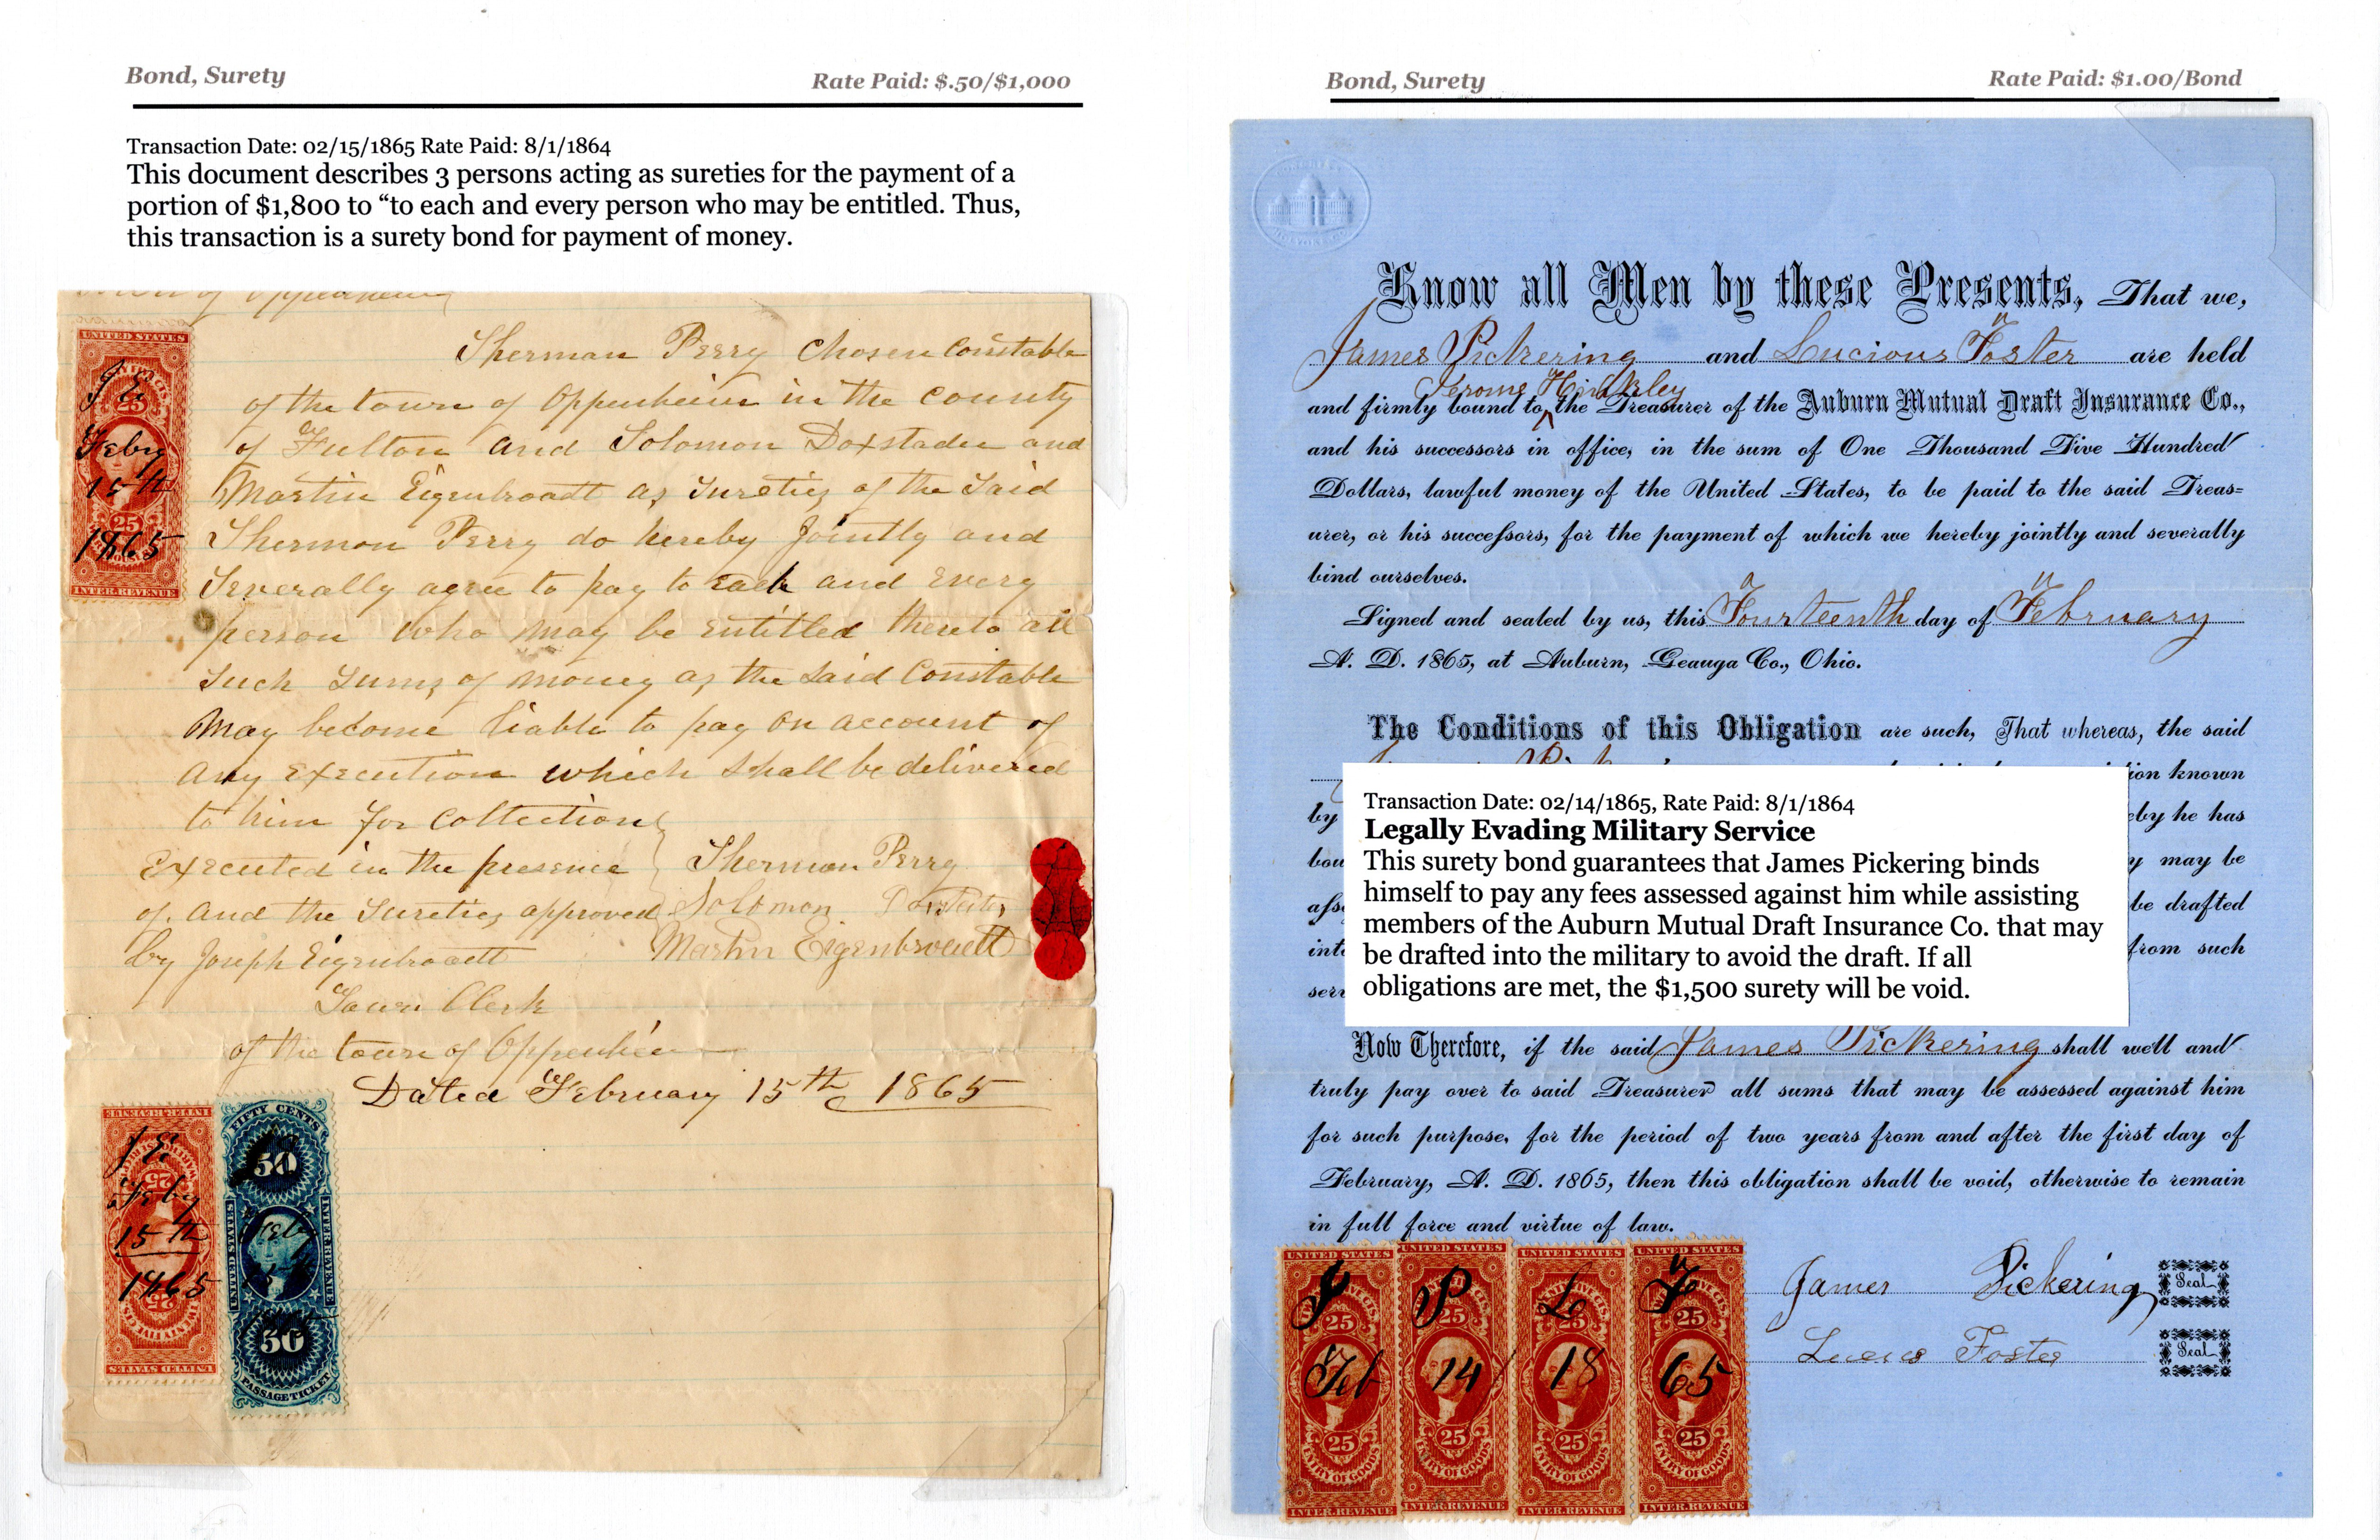 Bond, Surety
Rate Paid: $.50/$1,000
Transaction Date: 02/15/1865 Rate Paid: 8/1/1864
This document describes 3 persons acting as sureties for the payment of a
portion of $1,800 to “to each and every person who may be entitled. Thus,
this transaction is a surety bond for payment of money.
Sherman Perry Chosen Constable
of the town of Oppenheim in the County
of Fulton and Solomon Doxstader and
Martin Eigenbroadt as Sureties of the Said
Sherman Perry do hereby Jointly and
Severally agree to pay to each and every
person who may be entitled thereto all
Such Sums of money as the said Constable
May become liable to pay on account of
any Execution which shall be delivered
to him for Collection
Executed in the presence
of. and the Sureties approved
by Joseph Eigenbroadt
Town Clerk
of the town of Oppenheim
Sherman Perry
Solomon
Martin Eigenbroadt
Dated February 15th 1865
UNITED STATES
25
J E.
Feby
15th
25
1865
INTER.REVENUE
J E.
Feby
15th
1865
UNITED STATES
FIFTY CENTS
50
UNITED STATES
INTER.REVENUE
Feby
50
PASSAGE TICKET
Bond, Surety
Rate Paid: $1.00/Bond
Know all Men by these Presents, That we,
James Pickering and Lucious Foster are held
Jerome Hinkley
and firmly bound to ^ the Treasurer of the Auburn Mutual Draft Insurance Co.,
and his successors in office, in the sum of One Thousand Five Hundred
Dollars, lawful money of the United States, to be paid to the said Treas=
urer, or his successors, for the payment of which we hereby jointly and severally
bind ourselves.
Signed and sealed by us, this Fourteenth day of February
A. D. 1865, at Auburn, Geauga Co., Ohio.
The Conditions of this Obligation are such, That whereas, the said
known
by
he has
may be
be drafted
from such
Transaction Date: 02/14/1865, Rate Paid: 8/1/1864
Legally Evading Military Service
This surety bond guarantees that James Pickering binds
himself to pay any fees assessed against him while assisting
members of the Auburn Mutual Draft Insurance Co. that may
be drafted into the military to avoid the draft. If all
obligations are met, the $1,500 surety will be void.
Now Therefore, if the said James Pickering shall well and
truly pay over to said Treasurer all sums that may be assessed against him
for such purpose, for the period of two years from and after the first day of
February, A. D. 1865, then this obligation shall be void, otherwise to remain
in full force and virtue of law.
James Pickering Seal
Foster Seal
UNITED STATES UNITED STATES UNITED STATES UNITED STATES
J P L F
25 25 25 25
Feb 14 18 65
25 25 25 25
ENTRY OF GOODS ENTRY OF GOODS ENTRY OF GOODS ENTRY OF GOODS
INTER.REVENUE INTER.REVENUE INTER.REVENUE INTER.REVENUE